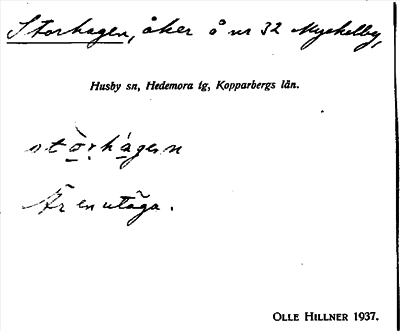 Storhagen, åker å nr 32 Myckelby,
Husby sn, Hedemora tg, Kopparbergs län.
stòrhágen
Är en utäga.
OLLE HILLNER 1937.